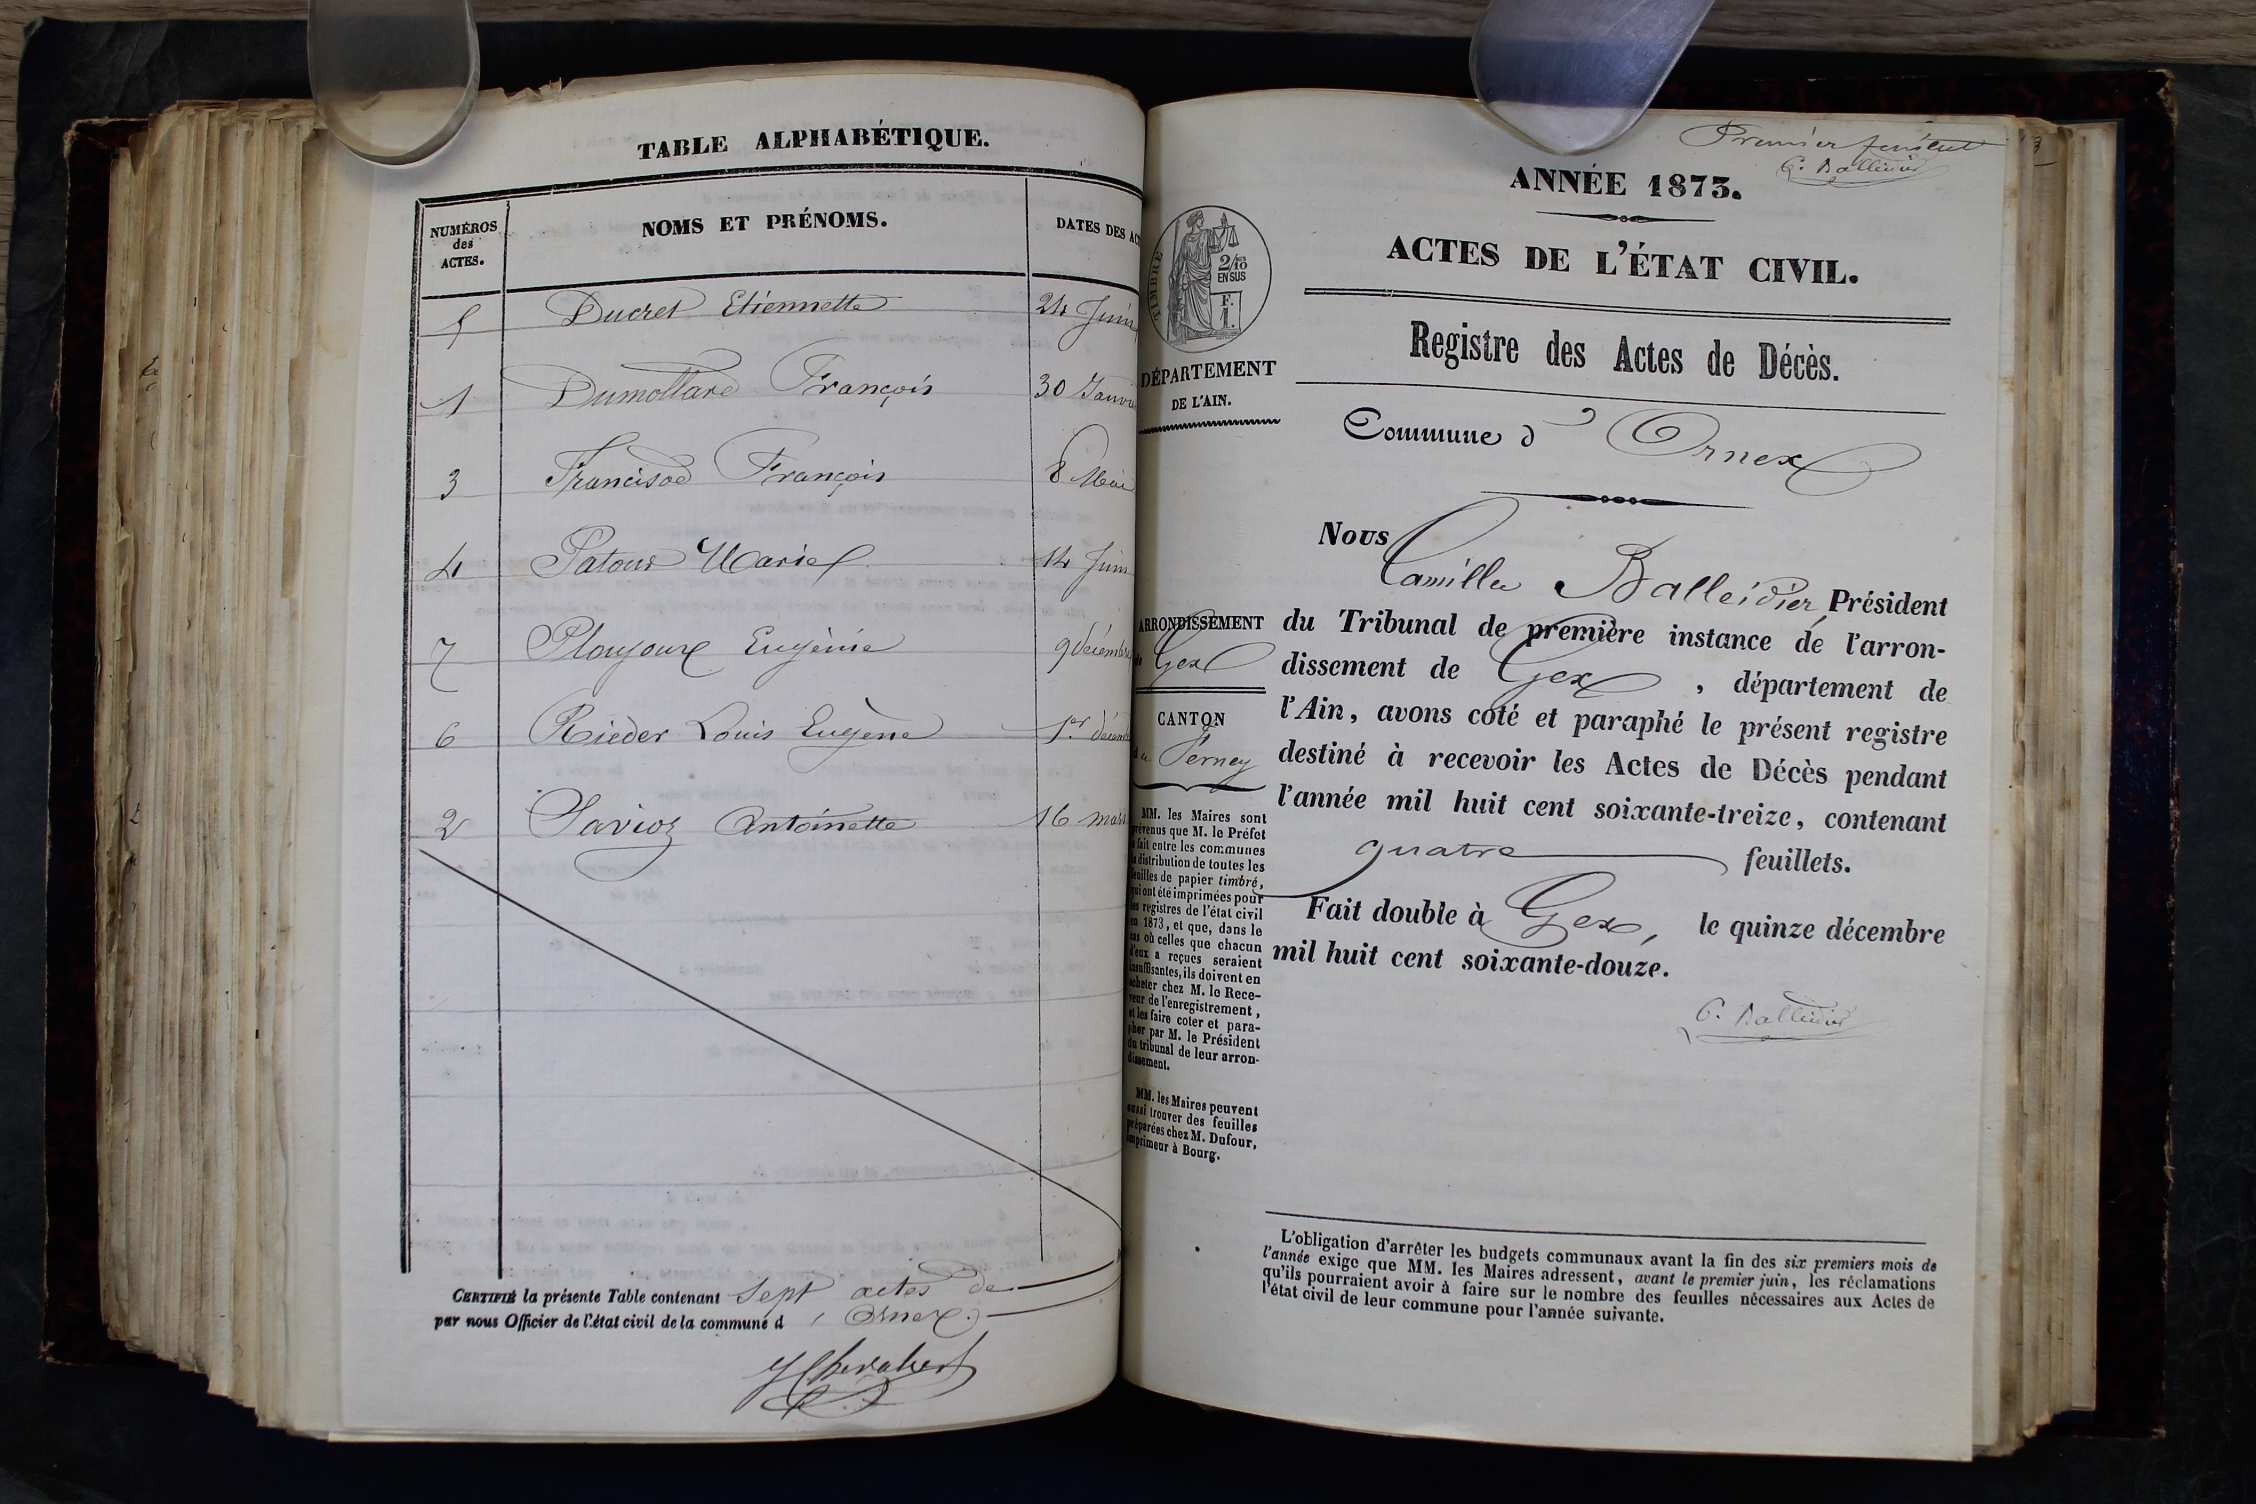 TABLE ALPHABÉTIQUE.
NUMÉROS
des
ACTES.
NOMS ET PRÉNOMS.
DATES DES AC
5 Ducret Etiennette 24 Juin
1 Dumollard François 30 Janvi
3 François 8 Mai
4 Patour Marie 14 Juin
7 Ploujoux Eugènie 9 décembre
6 Rieder Louis Eugène 1er décemb
2 Savioz Antoinette 16 mars
CERTIFIÉ la présente Table contenant Sept actes de
par nous Officier de l'état civil de la commune d' Ornex.
Premier feuillet
C. Balleidier
ANNÉE 1873.
ACTES DE L'ÉTAT CIVIL.
TIMBRE
2/10
EN SUS
F.
1.
Registre des Actes de Décès.
DÉPARTEMENT
DE L'AIN.
Commune d' Ornex
Nous Camille Balleidier, Président
du Tribunal de première instance de l'arron-
dissement de Gex, département de
l'Ain, avons coté et paraphé le présent registre
destiné à recevoir les Actes de Décès pendant
l'année mil huit cent soixante-treize, contenant
quatre feuillets.
Fait double à Gex, le quinze décembre
mil huit cent soixante-douze.
C. Balleidier
ARRONDISSEMENT
de Gex
CANTON
de Ferney
MM. les Maires sont
prévenus que M. le Préfet
a fait entre les communes
la distribution de toutes les
feuilles de papier timbré,
qui ont été imprimées pour
les registres de l'état civil
en 1873, et que, dans le
cas où celles que chacun
d'eux a reçues seraient
insuffisantes, ils doivent en
acheter chez M. le Rece-
veur de l'enregistrement,
et les faire coter et para-
pher par M. le Président
du tribunal de leur arron-
dissement.
MM. les Maires peuvent
aussi trouver des feuilles
préparées chez M. Dufour,
imprimeur à Bourg.
L'obligation d'arrêter les budgets communaux avant la fin des six premiers mois de
l'année exige que MM. les Maires adressent, avant le premier juin, les réclamations
qu'ils pourraient avoir à faire sur le nombre des feuilles nécessaires aux Actes de
l'état civil de leur commune pour l'année suivante.